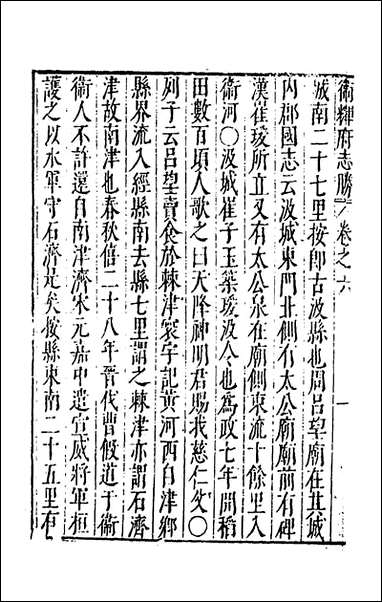 衛輝府志勝 卷之六 一
城南二十七里按即古汲縣也周呂望廟在其城
内郡國志云汲城東門北側有太公廟廟前有碑
漢崔瑗所立又有太公泉在廟側東流十餘里入
衛河〇汲城崔子玉築瑗汲令也為政七年開稻
田數百頃人歌之曰天降神明君賜我慈仁父〇
列子云呂望賣食於棘津寰宇記黃河西自津鄉
縣界流入經縣南去縣七里謂之棘津亦謂石濟
津故南津也春秋僖二十八年晉代曹假道于衛
衛人不許還自南津濟宋元嘉中遣宣威將軍桓
護之以水軍守石濟是矣按縣東南二十五里有